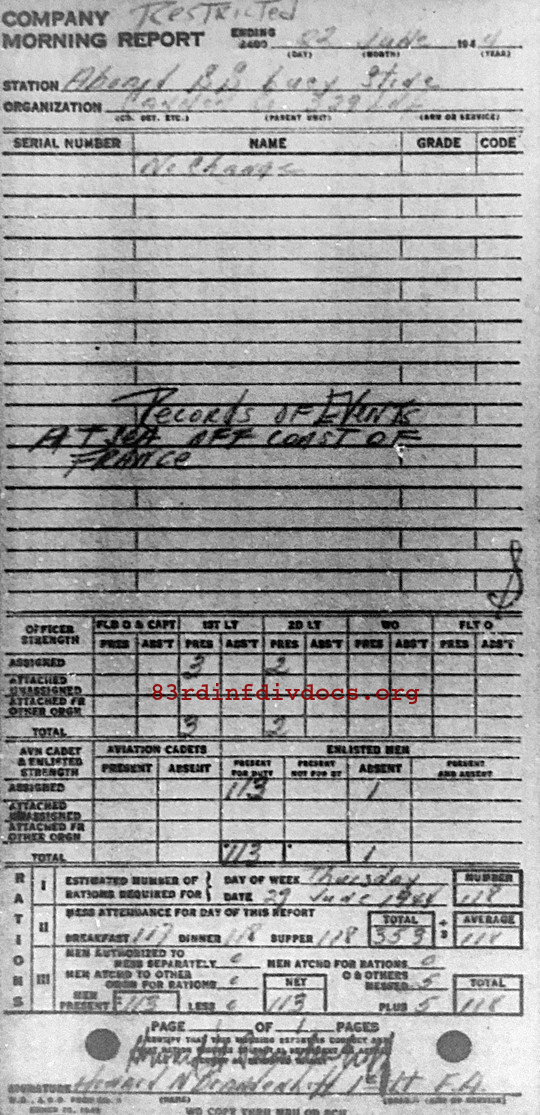 COMPANY Restricted
MORNING REPORT ENDING 2400 22 June 1944
(DAY) (MONTH) (YEAR)
STATION Aboard S.S. Lucy Stone
ORGANIZATION 329 Inf
(CO. DET. ETC.) (PARENT UNIT) (ARM OR SERVICE)
SERIAL NUMBER NAME GRADE CODE
No Change
Records of Events
AT SeA OFF COAST OF
FRANCe
OFFICER STRENGTH FLD O & CAPT 1ST LT 2D LT WO FLT O
PRES ABS'T PRES ABS'T PRES ABS'T PRES ABS'T PRES ABS'T
ASSIGNED 3 2
ATTACHED UNASSIGNED
83rdinfdivdocs.org
ATTACHED FR OTHER ORGN
TOTAL 3 2
AVN CADET & ENLISTED STRENGTH AVIATION CADETS ENLISTED MEN
PRESENT ABSENT PRESENT FOR DUTY PRESENT NOT FOR DY ABSENT PRESENT AND ABSENT
ASSIGNED 113 1
ATTACHED UNASSIGNED
ATTACHED FR OTHER ORGN
TOTAL 113 1
RATIONS
I ESTIMATED NUMBER OF RATIONS REQUIRED FOR { DAY OF WEEK Thursday NUMBER
DATE 29 June 1944 118
II MESS ATTENDANCE FOR DAY OF THIS REPORT TOTAL ÷ 3 AVERAGE
BREAKFAST 117 DINNER 118 SUPPER 118 353 118
III MEN AUTHORIZED TO MESS SEPARATELY 0 MEN ATCHD FOR RATIONS 0
MEN ATCHD TO OTHER ORGN FOR RATIONS 0 NET O & OTHERS MESSED 5 TOTAL
MEN PRESENT 113 LESS 0 113 PLUS 5 118
PAGE 1 OF 1 PAGES
SIGNATURE Howard N 1st Lt F.A.
(NAME) (GRADE) (ARM OR SERVICE)
W.D., A.G.O. FORM NO. 1